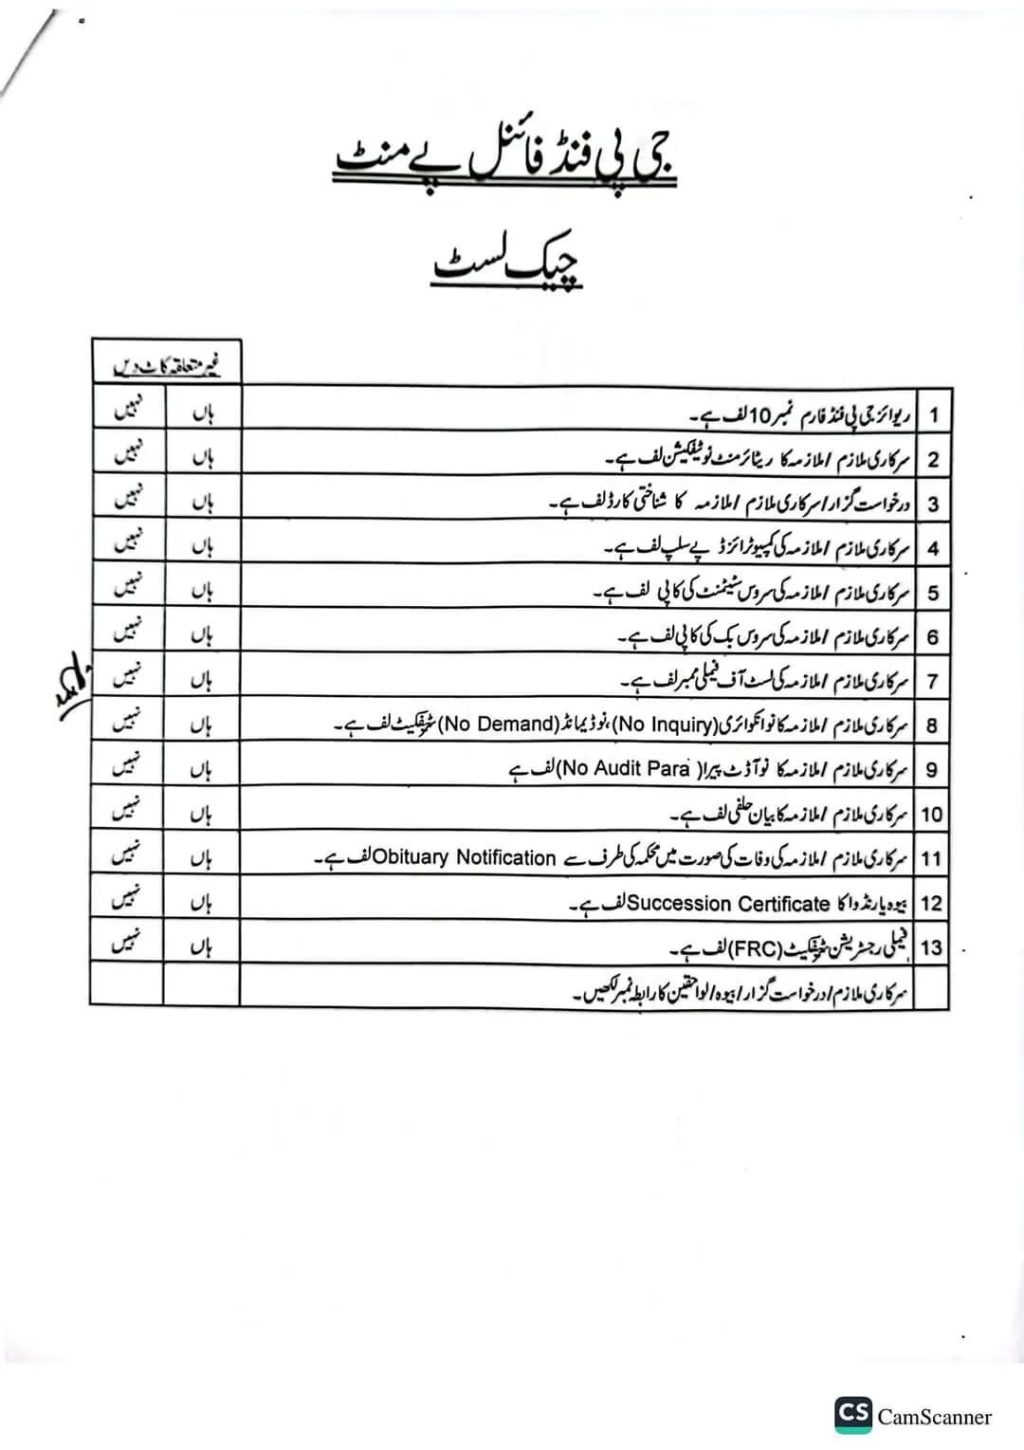 جی پی فنڈ فائنل پے منٹ
چیک لسٹ
غیر متعلقہ کاٹ دیں
1 ریوائز جی پی فنڈ فارم نمبر 10 لف ہے۔ ہاں نہیں
2 سرکاری ملازم / ملازمہ کا ریٹائرمنٹ نوٹیفکیشن لف ہے۔ ہاں نہیں
3 درخواست گزار/ سرکاری ملازم / ملازمہ کا شناختی کارڈ لف ہے۔ ہاں نہیں
4 سرکاری ملازم / ملازمہ کی کمپیوٹرائزڈ پے سلپ لف ہے۔ ہاں نہیں
5 سرکاری ملازم / ملازمہ کی سروس سٹیٹمنٹ کی کاپی لف ہے۔ ہاں نہیں
6 سرکاری ملازم / ملازمہ کی سروس بک کی کاپی لف ہے۔ ہاں نہیں
7 سرکاری ملازم / ملازمہ کی لسٹ آف فیملی ممبر لف ہے۔ ہاں نہیں
8 سرکاری ملازم / ملازمہ کا نو انکوائری (No Inquiry)، نو ڈیمانڈ (No Demand) سرٹیفکیٹ لف ہے۔ ہاں نہیں
9 سرکاری ملازم / ملازمہ کا نو آڈٹ پیرا (No Audit Para) لف ہے ہاں نہیں
10 سرکاری ملازم / ملازمہ کا بیان حلفی لف ہے۔ ہاں نہیں
11 سرکاری ملازم / ملازمہ کی وفات کی صورت میں محکمہ کی طرف سے Obituary Notification لف ہے۔ ہاں نہیں
12 بیوہ یا رنڈوا کا Succession Certificate لف ہے۔ ہاں نہیں
13 فیملی رجسٹریشن سرٹیفکیٹ (FRC) لف ہے۔ ہاں نہیں
سرکاری ملازم / درخواست گزار / بیوہ / لواحقین کا رابطہ نمبر لکھیں۔
CS CamScanner